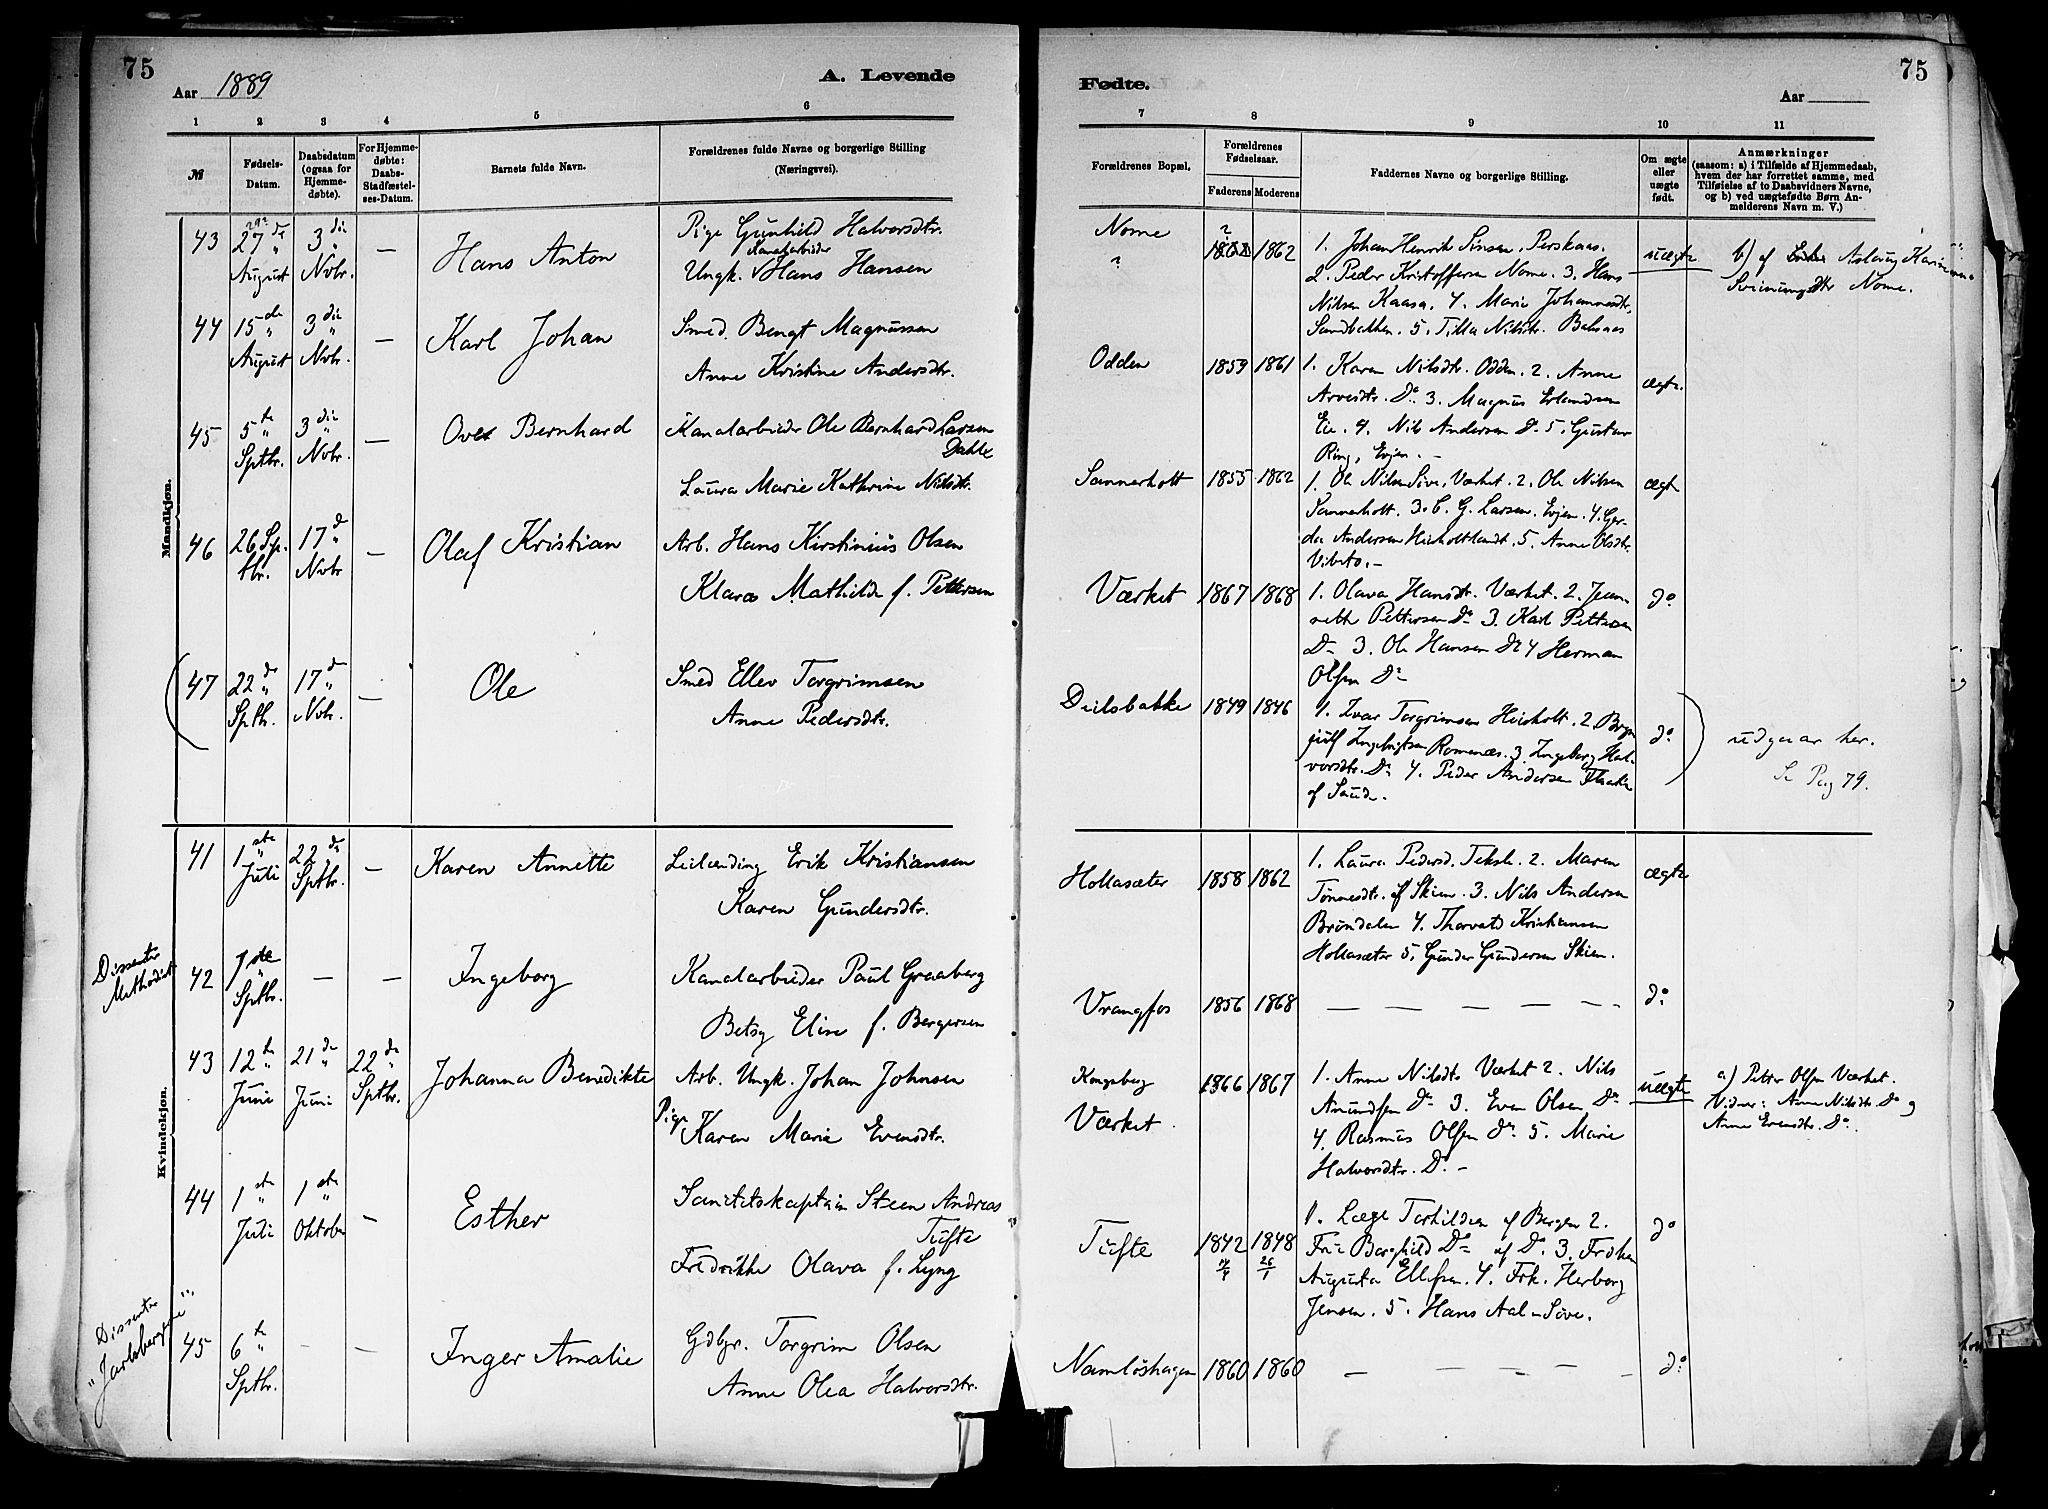 75
Aar 1889
A. Levende
1
2
3
4
5
6
№
Fødsels-Datum.
Daabsdatum (ogsaa for Hjemmedøbte).
For Hjemmedøbte: Daabs-Stadfæstelses-Datum.
Barnets fulde Navn.
Forældrenes fulde Navne og borgerlige Stilling
(Næringsvei).
Mandkjøn.
43 27de August 3die Novbr. — Hans Anton
Pige Gunhild Halvorsdtr.
Kanalarbeider
Ungk. Hans Hansen
44 15de August 3die Novbr. — Karl Johan
Smed. Bengt Magnussen
Anne Kristine Andersdtr.
45 5te Sptbr. 3die Novbr. — Ove Bernhard
Kanalarbeider Ole Bernhard Larsen
Dahle
Laura Marie Kathrine Nilsdtr.
46 26 Sptbr. 17de Novbr — Olaf Kristian
Arb. Hans Kirstinius Olsen
Klara Mathilde f. Pettersen
47 22de Sptbr. 17de Novbr. — Ole
Smed Ellev Torgrimsen
Anne Pedersdtr.
Kvindekjøn.
41 1ste Juli 22de Sptbr. — Karen Annette
Leilænding Erik Kristiansen
Karen Gundersdtr.
Dissenter
Methodist
42 7de Sptbr. — — Ingeborg
Kanalarbeider Paul Graaberg
Betsy Elise f. Bergersen
43 12te Juni 21de Juni 22de Sptbr. Johanna Benedikte
Arb. Ungk. Johan Johnsen
Pige Karen Marie Evensdtr.
44 1ste Juli 1ste Oktober — Esther
Sanitetskaptein Steen Andreas
Tufte
Fredrikke Olava f. Lyng
Dissenter
"Jarlsbergerne"
45 6te Sptbr. — — Inger Amalie
Gdbgr. Torgrim Olsen
Anne Olea Halvorsdtr.
Fødte.
75
Aar
7
8
9
10
11
Forældrenes Bopæl.
Forældrenes Fødselsaar.
Faderens
Moderens
Faddernes Navne og borgerlige Stilling.
Om ægte eller uægte født.
Anmærkninger
(saasom: a) i Tilfælde af Hjemmedaab,
hvem der har forrettet samme, med
Tilføielse af to Daabsvidners Navne,
og b) ved uægtefødte Børn Anmelderens Navn m. V.)
Nome
?
? 1862
1. Johan Henrik Simsen, Perskaas.
2. Peder Kristoffersen Nome. 3. Hans
Nilsen Kaasa. 4. Marie Johannesdtr.
Sandbakken. 5. Tilla Nilsdtr. Balsaas
uægte
b) af Aslaug Karine
Sveinungsdtr Nome.
Odden 1859 1861
1. Karen Nilsdtr. Odden. 2. Anne
Arvesdtr. Do 3. Magnus Erlandsen
Eie. 4. Nils Andersen Do 5. Gustav
Ring, Evjen. —
ægte.
Sannerholt 1855 1862
1. Ole Nilsen Søve, Værket. 2. Ole Nilsen
Sannerholt. 3. C. G. Larsen. Evjen. 4. Gerda
Andersen Heisholtlandt. 5. Anne Olsdtr.
Vibeto. —
ægte
Værket 1867 1868
1. Olava Hansdtr. Værket. 2. Jeannette
Pettersen Do 3. Karl Pettersen
Do 3. Ole Hansen Do 4 Herman
Olsen Do
do
Deilsbakke 1849 1846
1. Ivar Torgrimsen Heisholt. 2.
Ingebrigtsen Romenæs. 3. Ingeborg Halvorsdtr.
Do 4. Peder Andersen
af Saude.
do
udgaar her.
Se Pag 79.
Hollasæter 1858 1862
1. Laura Pedersd. Teksle. 2. Maren
Tønnesdtr. af Skien. 3. Nils Andersen
Brøndalen 4. Thorvald Kristiansen
Hollasæter 5. Gunder Gundersen Skien.
ægte
Vrangfos 1856 1868 — — — — — — do
Kongsberg
Værket
1866 1867
1. Anne Nilsdtr Værket 2. Nils
Amundsen Do 3. Even Olsen Do
4. Rasmus Olsen Do 5. Marie
Halvorsdtr. Do —
uægte
a) Petter Olsen Værket.
Vidner: Anne Nilsdtr. Do og
Anne Evensdtr. Do.
Tufte 1842 1848
26/1
1. Læge Torkildsen af Bergen 2.
Frue Borghild Do af Do. 3. Frøken
Augusta Ellefsen. 4. Frk. Herborg
Jensen. 5. Hans Aal - Søve.
do
Namløshagen 1860 1860 — — — — — do